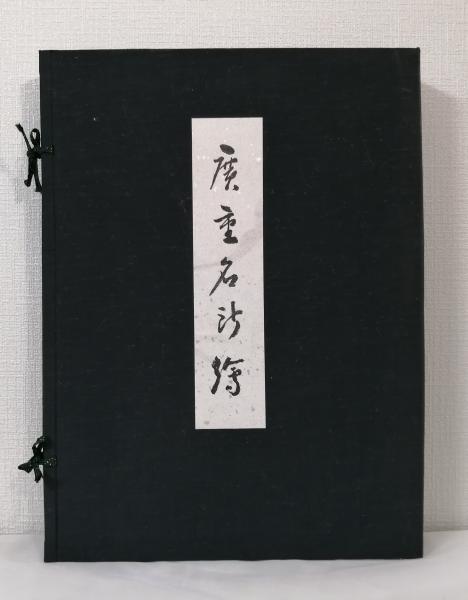 廣重名所繪